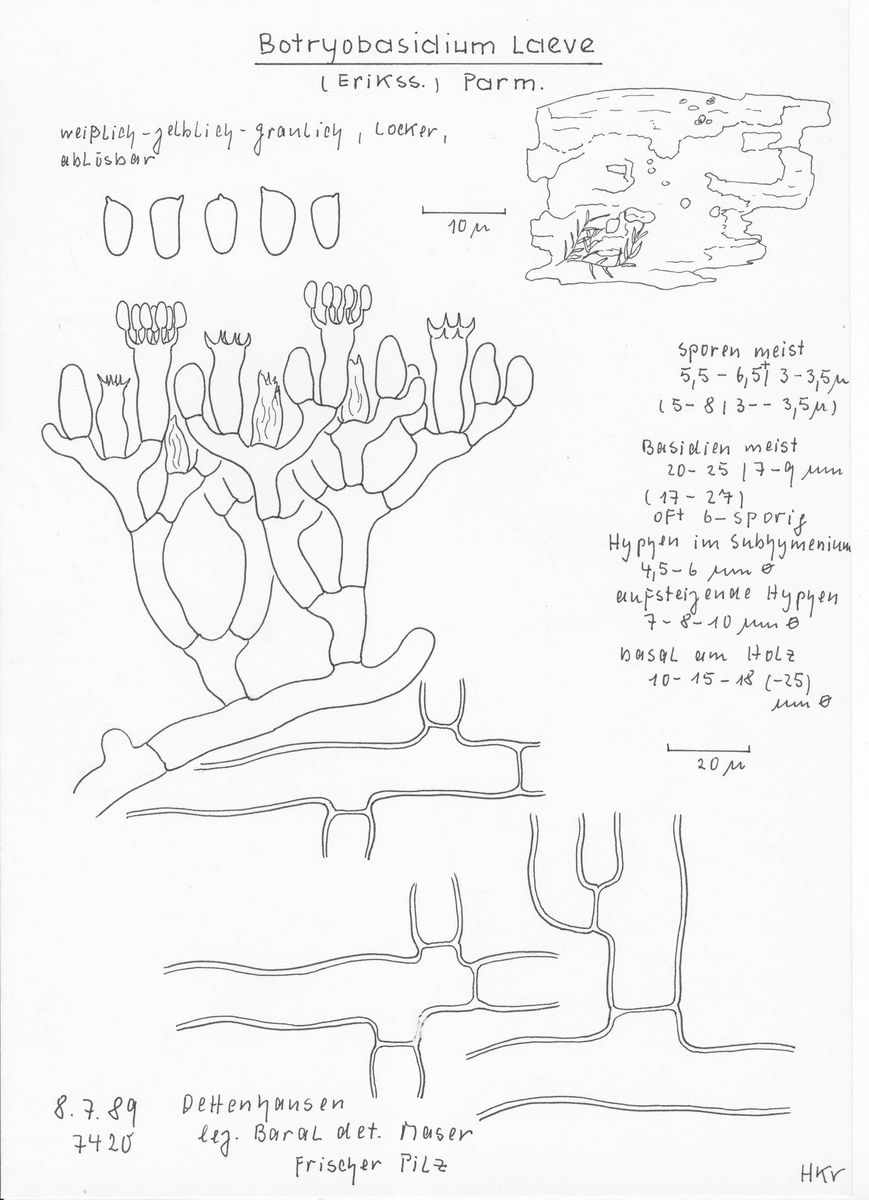 Botryobasidium Laeve
(Erikss.) Parm.
weißlich-gelblich-graulich, Locker,
ablösbar
10 µ
Sporen meist
5,5 - 6,5+/ 3-3,5µ
(5-8/3-- 3,5µ)
Basidien meist
20-25 /7-9 µm
(17-27)
oft 6-sporig
Hyphen im Subhymenium
4,5-6 µm ø
aufsteigende Hyphen
7-8-10 µm ø
basal am Holz
10-15-18 (-25)
µm ø
20 µ
8.7.89 Dettenhausen
7420 leg. Baral det. Maser
Frischer Pilz
HKr